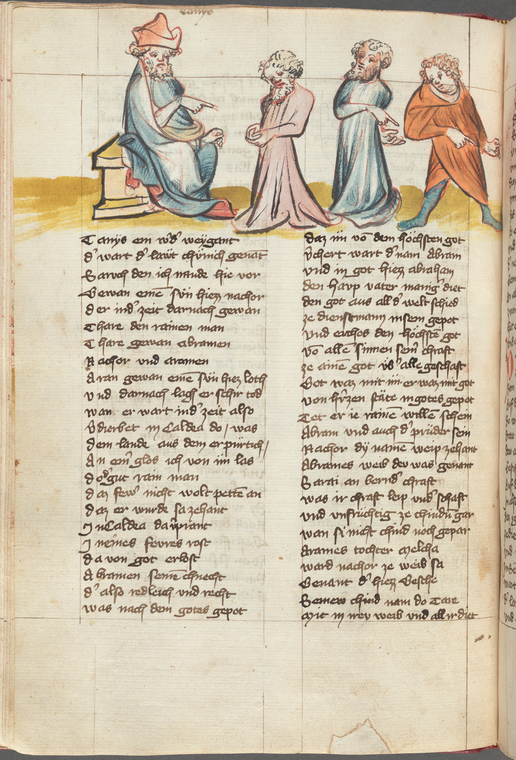 Tanys
Tanys ein wͦd' weygant
d' wart d' lawt chünich genāt
Saroch den ich nande hie vor
Gewan einē sün hiez nachor
der ind' zeit darnach gewan
Thare den rainen man
Thare gewan abramen
Nachor und aramen
Aran gewan einē sün hiez loth
und darnach lag er schir tod
wan er wart ind' zeit also
in Caldea do was
Dem lande aus dem er pürtich
An ein' glos ich von im las
der gut rain man
daz fewr nicht wolt petē an
daz er wurde sa zehant
In Caldea da prant
In eines fewres rost
da von got erlost
Abramen seinē chnecht
d' also redleich und recht
was nach dem gotes gepot
daz im vō dem höchsten got
v'chert wart d' nam abram
und in got hiez abraham
den havp vater manig' diet
den got aus all' d' welt schied
ze dienstmann in sein gepot
und erchos den höchstē got
vō allē sinnen seiner chraft
ze ainē got üb' alle geschaft
Got waz mit im er waz mit got
von h'zen stäte in gotes gepot
Tet er ie rainē willē schein
Abram und auch d' prüder sein
Nachor dy namē weip zehant
Abrames weib dev was genant
Sarai an bernd' chraft
was ir chraft leip und schaft
und unfruchtig ze chindñ gar
wan si nicht chind noch gepar
Arames tochter melcha
ward nachor ze weib sa
Genant d' hiez
Seinew chind nam do Tare
Mit in irev weib und all ir diet